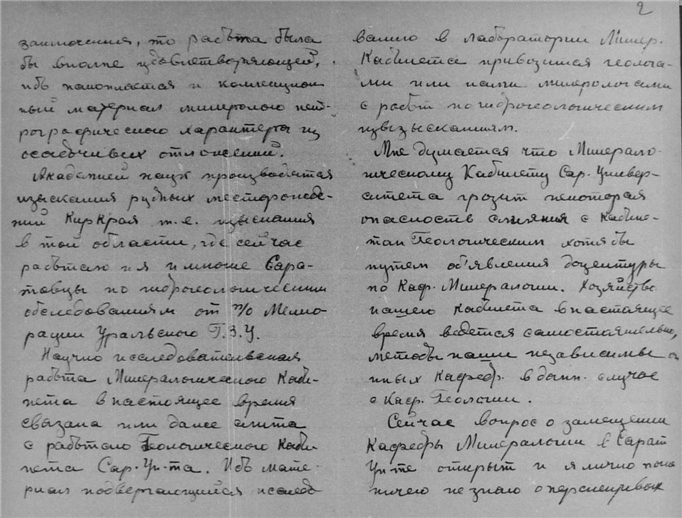 заключения, то работа была
бы вполне удовлетворяющей,
ибо накопляется и коллекцион
ный материал минералого пет-
рографического характера из
осадочных отложений.
Академией наук производятся
изыскания рудных месторожде-
ний Киркрая т.е. изыскания
в той области, где сейчас
работаю и я и многие Сара-
товцы по гидрогеологическим
обследованиям от п/о Мелио-
рации Уральского Г.З.У.
Научно исследовательская
работа Минералогического Каби-
нета в настоящее время
связана или далее слита
с работою Геологического Каби-
нета Сар. Ун-та. Ибо мате-
риал подвергающийся исследо
2
ванию в лаборатории Минер.
Кабинета привозится геолога-
ми или нами минералогами
с работ по гидрогеологическим
изысканиям.
Мне думается что Минерало-
гическому Кабинету Сар. Универ-
ситета грозит некоторая
опасность слияния с Кабине-
том Геологическим хотя бы
путем объявления доцентуры
по Каф. Минералогии. Хозяйство
нашего Кабинета в настоящее
время ведется самостоятельно,
методы наши независимы от
иных Кафедр. в данн. случае
с Каф. Геологии.
Сейчас вопрос о замещении
Кафедры Минералогии в Сарат
Ун-те открыт и я лично пока
ничего не знаю о перспективах